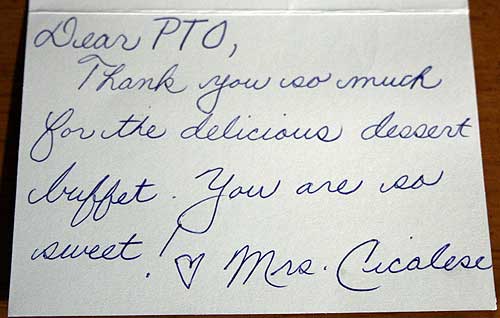 Dear PTO,
Thank you so much
for the delicious dessert
buffet. You are so
sweet! ♡ Mrs. Cicalese